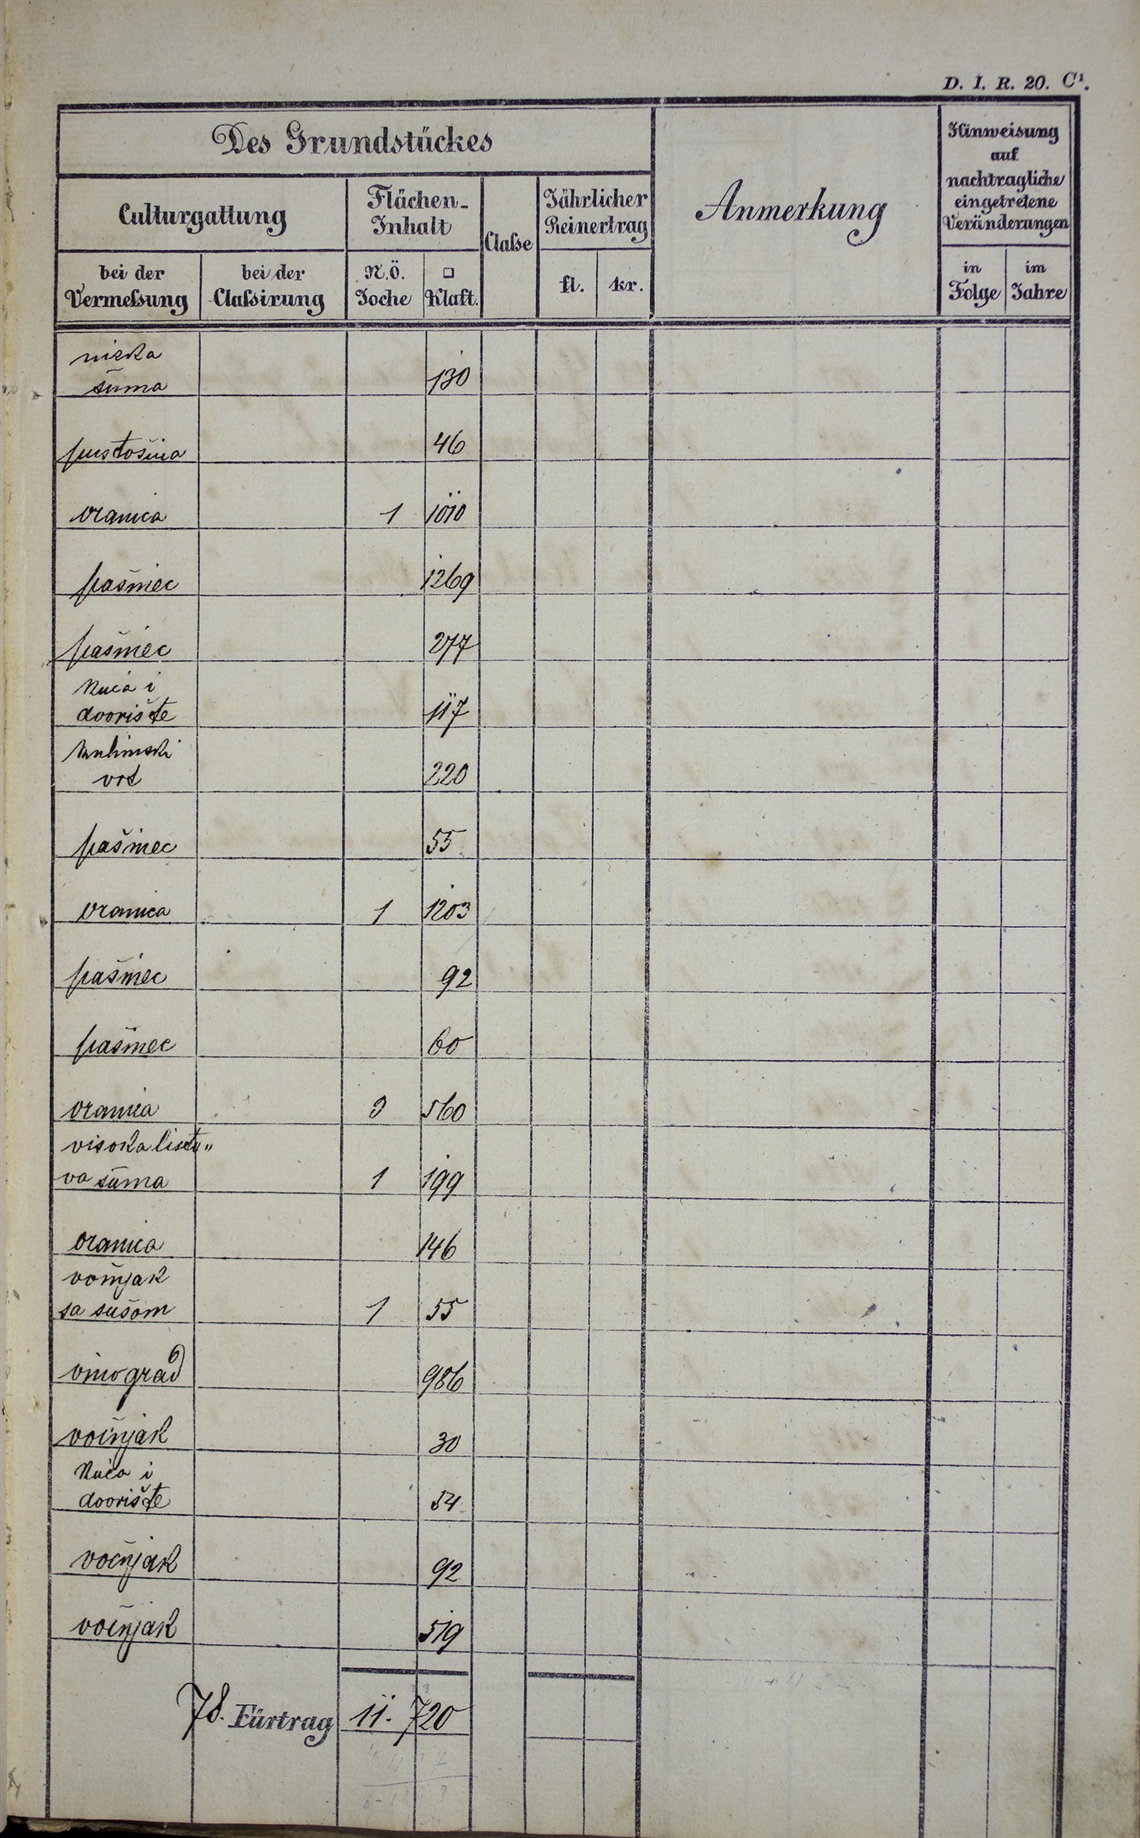 D. I. R. 20. C¹.
Des Grundstückes
Anmerkung
Hinweisung
auf
nachtragliche
eingetretene
Veränderungen
Culturgattung
Flächen-
Inhalt
Claße
Jährlicher
Reinertrag
bei der
Vermeßung
bei der
Claßirung
N.Ö.
Joche
□
Klaft.
fl.
kr.
in
Folge
im
Jahre
niska
šuma 130
pustošina 46
oranica 1 1010
pašniec 1269
pašniec 277
Kuća i
dvorište 117
vrt 220
pašniec 55
oranica 1 1203
pašniec 92
pašniec 60
oranica 3 560
visoka lista„
va šuma 1 199
oranica 146
voćnjak
sa sušom 1 55
vinograd 986
voćnjak 30
Kuća i
dvorište 54
voćnjak 92
voćnjak 519
78. Fürtrag 11. 720